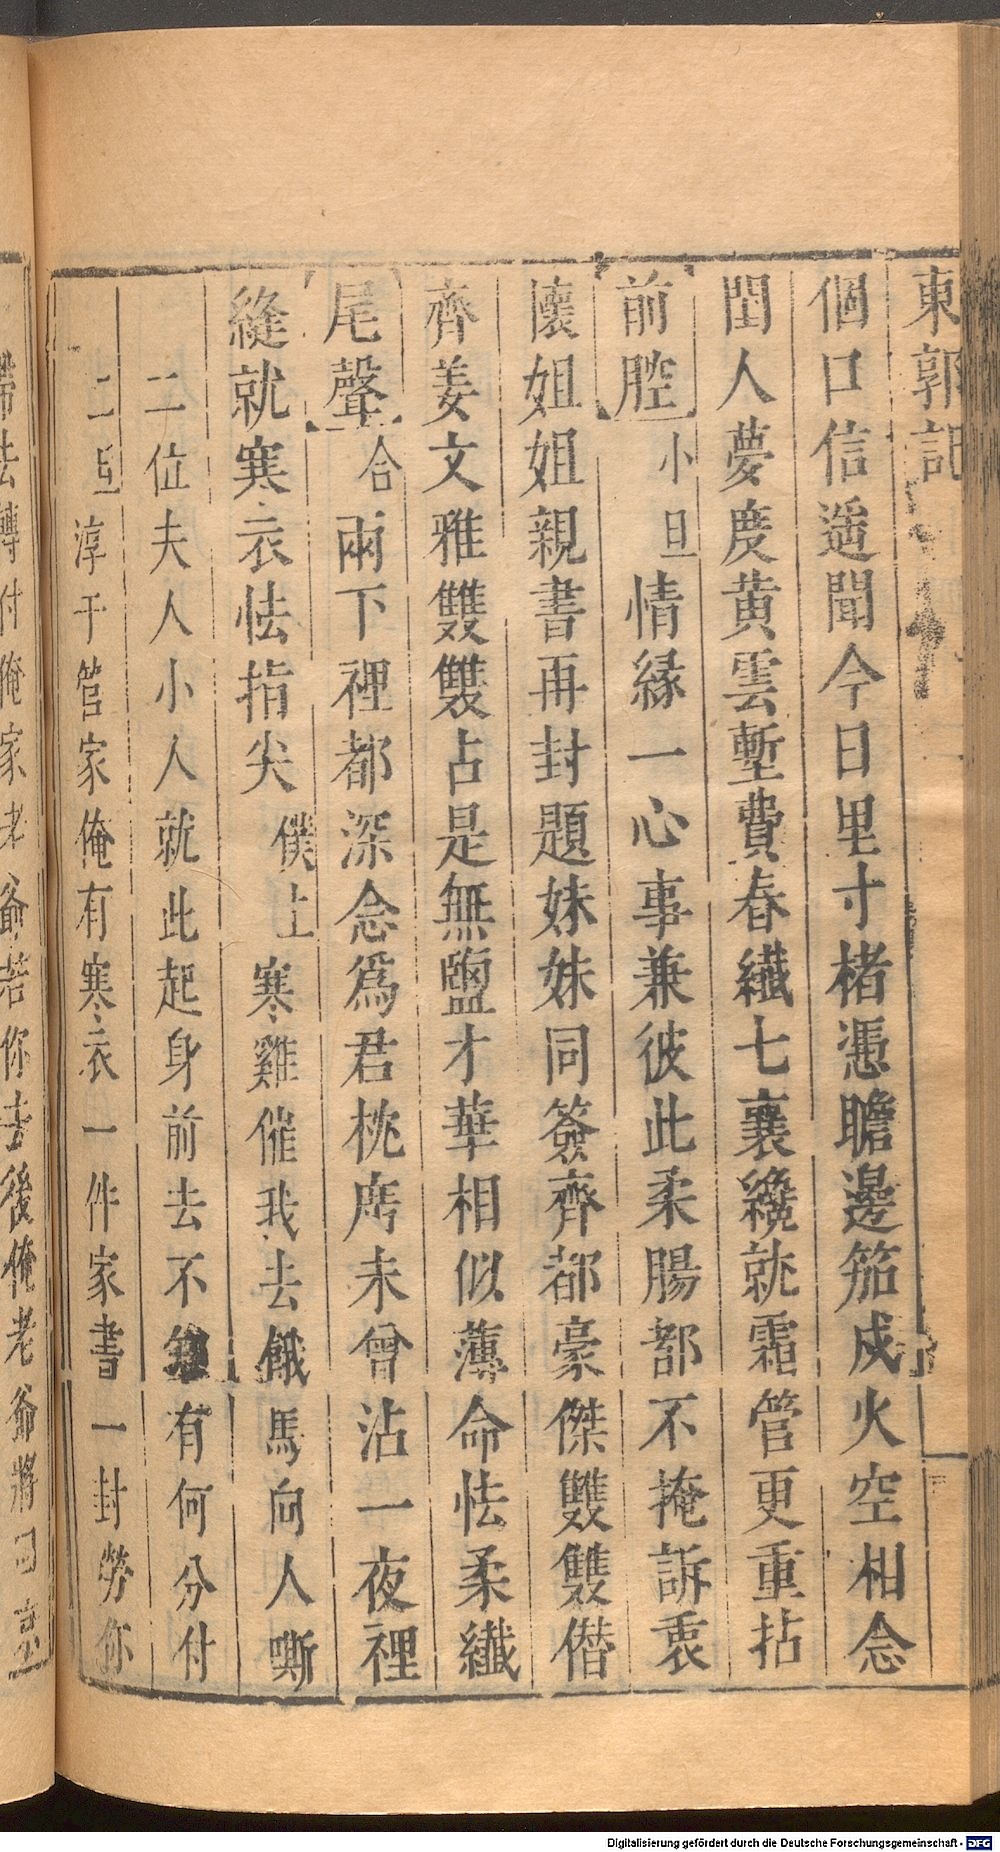 東郭記
個口信遥聞今日里寸楮憑瞻邊笳成火空相念
閨人夢度黄雲塹費春纖七襄纔就霜管更重拈
前腔 小旦 情緣一心事兼彼此柔腸都不掩訴衷
懷姐姐親書再封題妹妹同簽齊都豪傑雙雙偺
齊姜文雅雙雙占是無鹽才華相似薄命怯柔纖
尾聲 合 兩下裡都深念爲君桃𢈔未曾沾一夜裡
縫就寒衣怯指尖 僕上 寒雞催我去餓馬向人嘶
二位夫人小人就此起身前去不 有何分付
二旦 淳于管家俺有寒衣一件家書一封勞你
帶去轉付俺家老爺若你去後俺老爺將
Digitalisierung gefördert durch die Deutsche Forschungsgemeinschaft - DFG